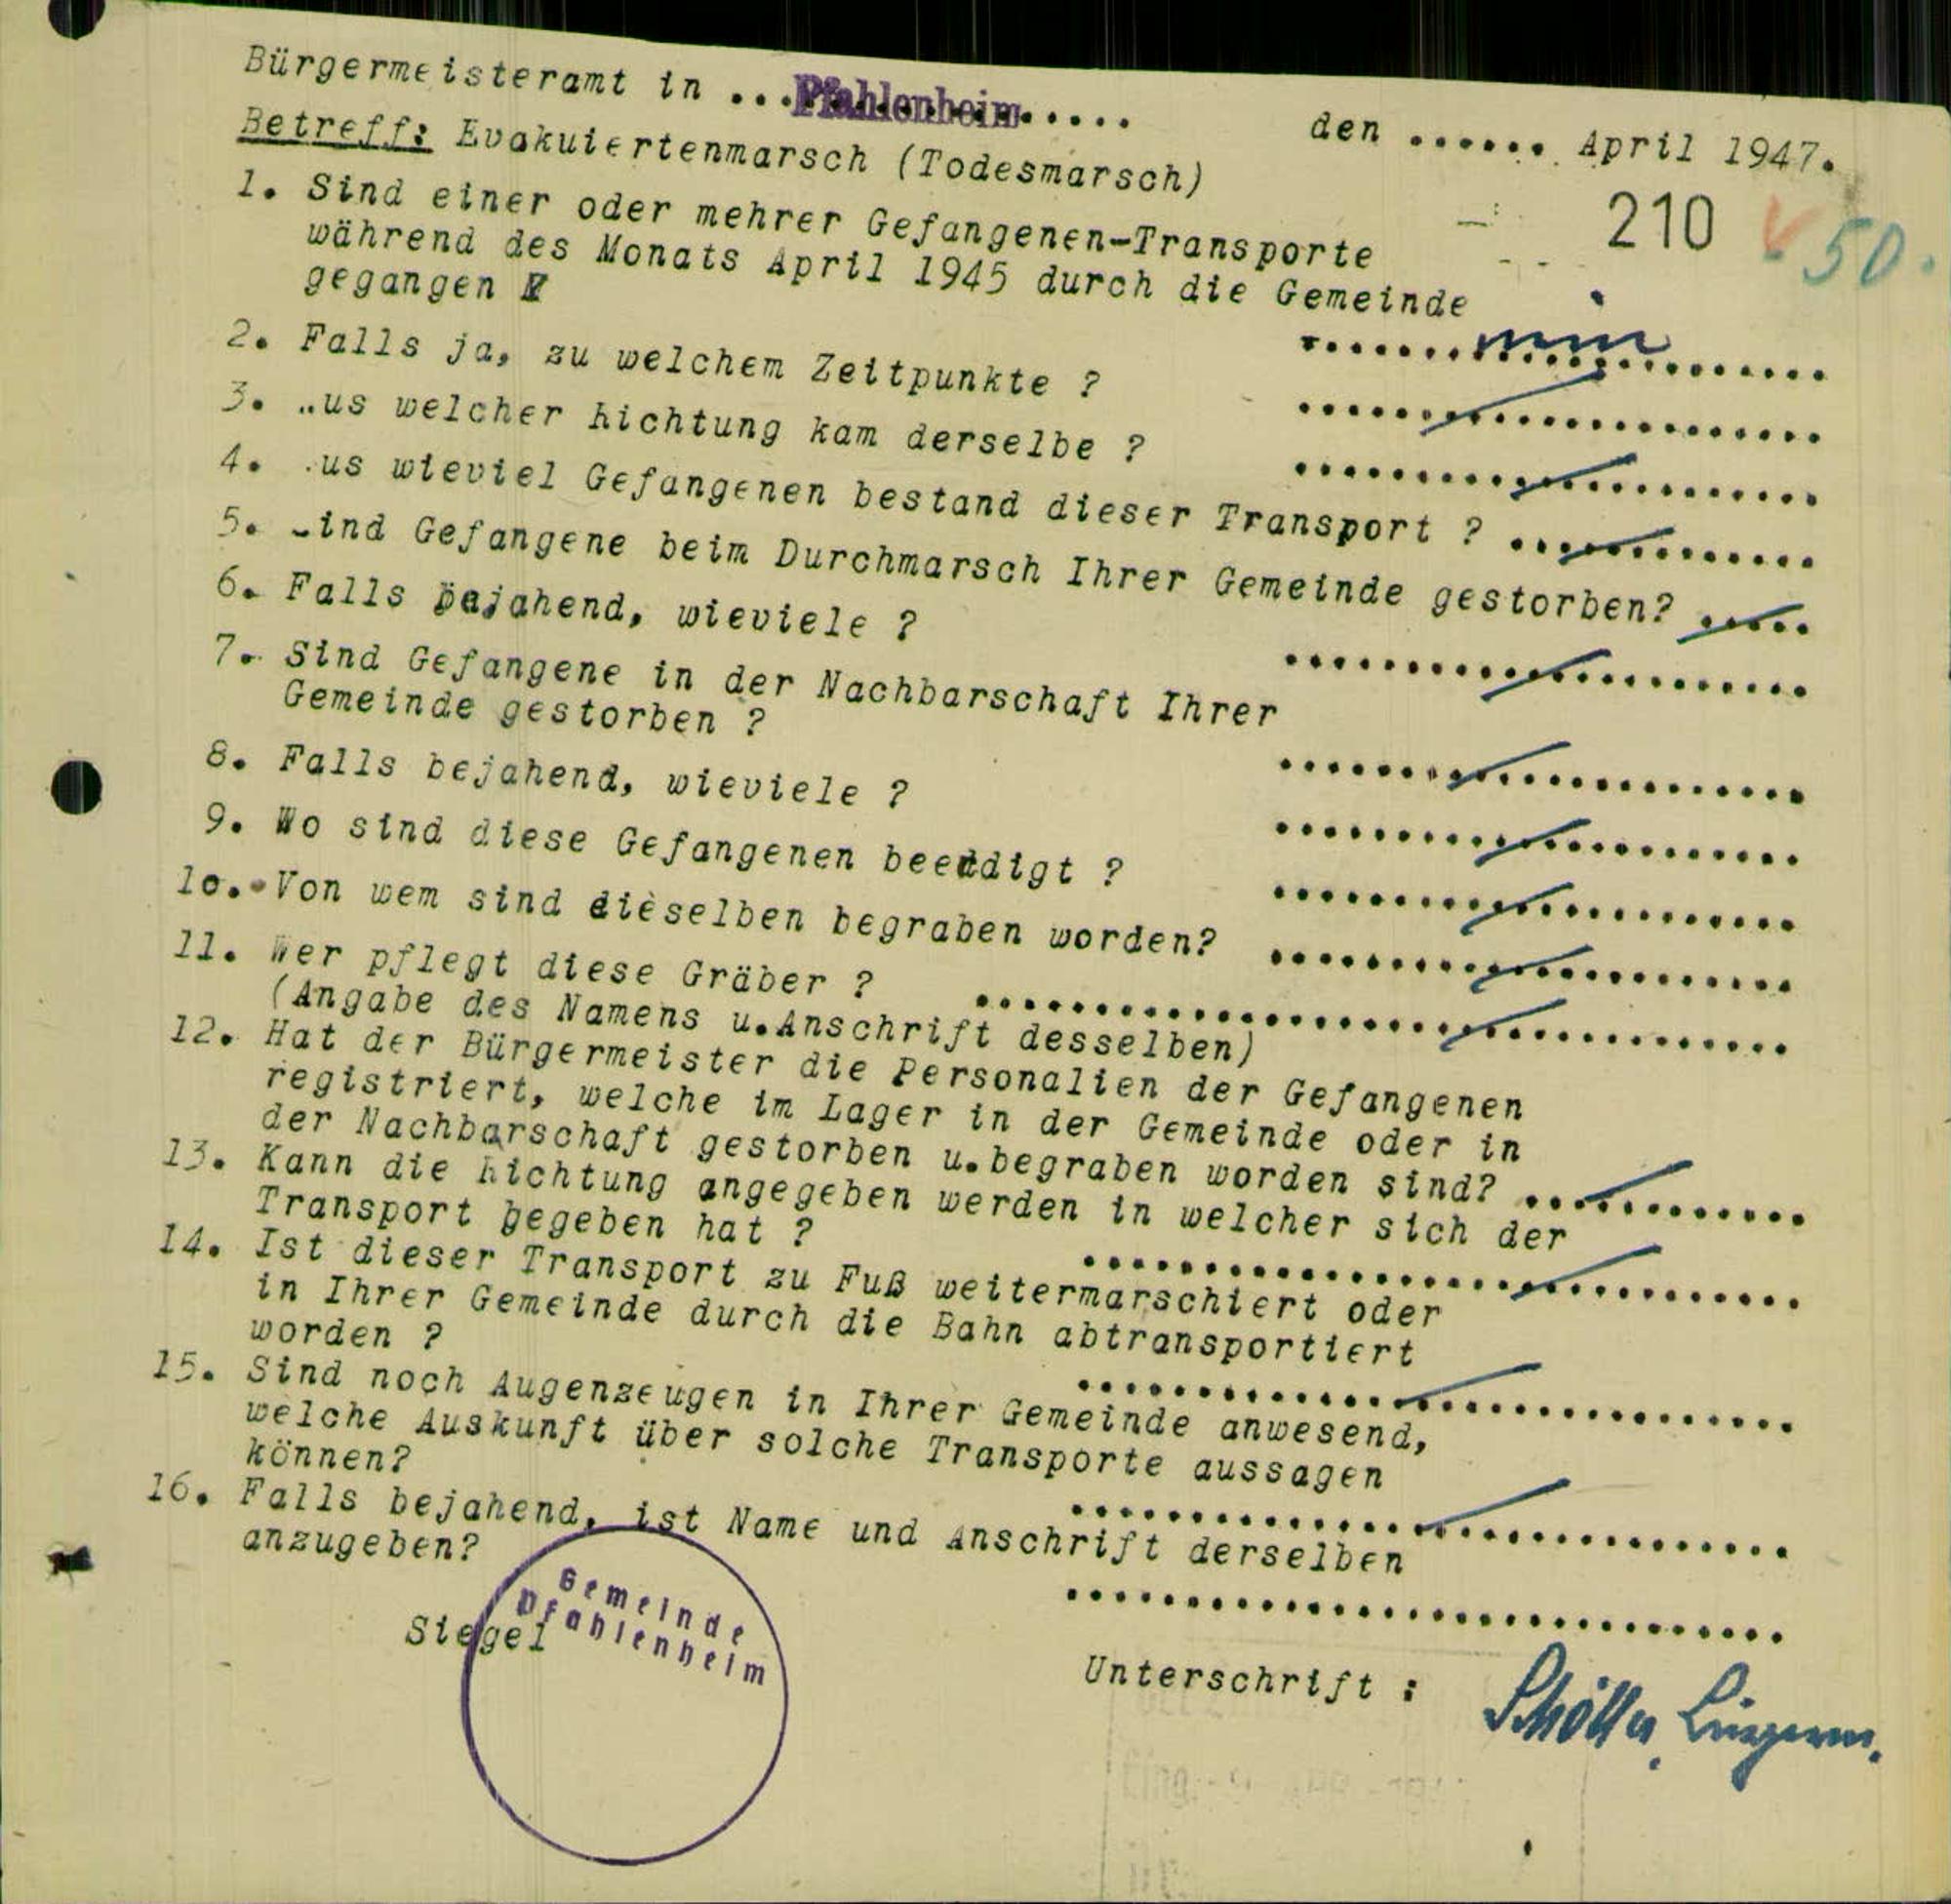 Bürgermeisteramt in ... Pfahlenheim .....
den ...... April 1947.
Betreff: Evakuiertenmarsch (Todesmarsch)
210 50.
1. Sind einer oder mehrer Gefangenen-Transporte
während des Monats April 1945 durch die Gemeinde
gegangen ........ nein ........
2. Falls ja, zu welchem Zeitpunkte ? ........
3. ..us welcher Richtung kam derselbe ? ........
4. .us wieviel Gefangenen bestand dieser Transport ? ........
5. ind Gefangene beim Durchmarsch Ihrer Gemeinde gestorben? .....
6. Falls bejahend, wieviele ? ........
7. Sind Gefangene in der Nachbarschaft Ihrer
Gemeinde gestorben ? ........
8. Falls bejahend, wieviele ? ........
9. Wo sind diese Gefangenen beerdigt ? ........
10. Von wem sind dieselben begraben worden? ........
11. Wer pflegt diese Gräber ? ........
(Angabe des Namens u.Anschrift desselben)
12. Hat der Bürgermeister die Personalien der Gefangenen
registriert, welche im Lager in der Gemeinde oder in
der Nachbarschaft gestorben u.begraben worden sind? ........
13. Kann die Richtung angegeben werden in welcher sich der
Transport begeben hat ? ........
14. Ist dieser Transport zu Fuß weitermarschiert oder
in Ihrer Gemeinde durch die Bahn abtransportiert
worden ? ........
15. Sind noch Augenzeugen in Ihrer Gemeinde anwesend,
welche Auskunft über solche Transporte aussagen
können? ........
16. Falls bejahend, ist Name und Anschrift derselben
anzugeben? ........
Gemeinde
Pfahlenheim
Siegel
Unterschrift :